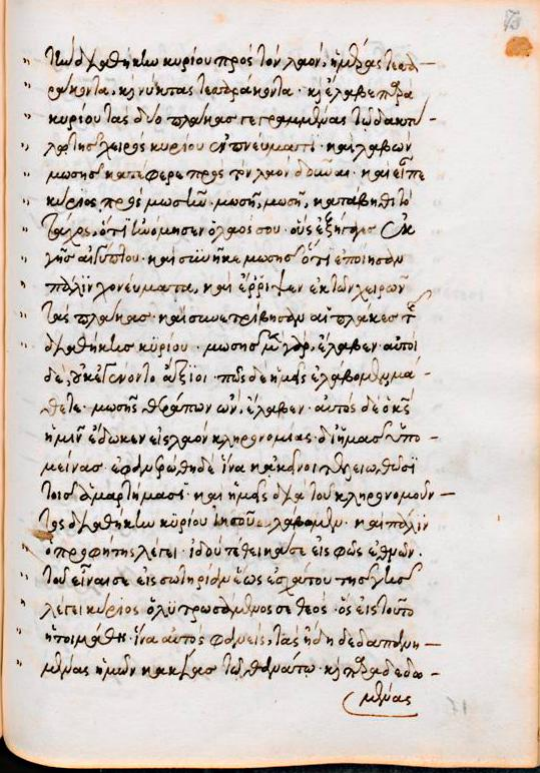 τὴν διαθήκην κυρίου πρὸς τὸν λαόν, ἡμέρας τεσσα-
ράκοντα, κ(αὶ) νύκτας τεσσαράκοντα· κ(αὶ) ἔλαβε παρὰ
κυρίου τὰς δύο πλάκας γεγραμμένας τῷ δακτύ-
λῳ τῆς χειρὸς κυρίου ἐν πνεύματι· καὶ λαβὼν
μωσῆς κατέφερε πρὸς τὸν λαὸν δοῦναι· καὶ εἶπε
κύριος πρὸς μωσῆν· μωσῆ, μωσῆ, κατάβηθι τὸ
τάχος, ὅτι ἠνόμησεν ὁ λαός σου· οὓς ἐξήγαγες ἐκ
γῆς αἰγύπτου· καὶ συνῆκε μωσῆς ὅτι ἐποίησαν
πάλιν χονεύματα, καὶ ἔῤῥιψεν ἐκ τῶν χειρῶν
τὰς πλάκας· καὶ συνετρίβησαν αἱ πλάκες τῆς
διαθήκης κυρίου· μωσῆς μὲν γὰρ, ἔλαβεν· αὐτοὶ
δὲ, οὐκ ἐγένοντο ἄξιοι· πῶς δὲ ἡμεῖς ἐλάβομεν, μά-
θετε· μωσῆς θεράπων ὢν, ἔλαβεν· αὐτὸς δὲ ὁ κ(ύριο)ς
ἡμῖν ἔδωκεν εἰς λαὸν κληρονομίας· δι' ἡμᾶς ὑπο-
μείνας· ἐφανερώθη δὲ ἵνα κἀκεῖνοι τελειωθῶσι
τοῖς ἁμαρτήμασι· καὶ ἡμεῖς διὰ τοῦ κληρονομοῦν-
τος διαθήκην κυρίου ἰησοῦ λάβωμεν· καὶ πάλιν
ὁ προφήτης λέγει· ἰδοὺ τέθεικά σε εἰς φῶς ἐθνῶν·
τοῦ εἶναί σε εἰς σωτηρίαν ἕως ἐσχάτου τῆς γῆς
λέγει κύριος ὁ λυτρωσάμενός σε θεός· ὃς εἰς τοῦτο
ἡτοιμάσθη· ἵνα αὐτὸς φανεὶς, τὰς ἤδη δεδαπανη-
μένας ἡμῶν καρδίας τῷ θανάτῳ· κ(αὶ) παραδεδο-
μένας